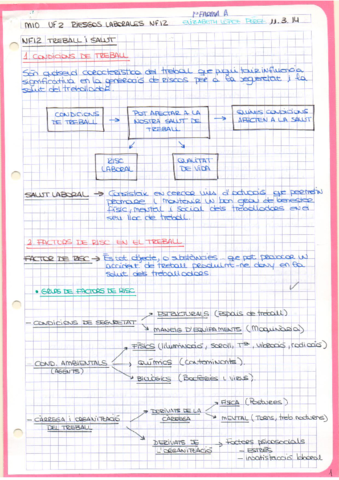 1ª PÀGINA A
M10 UF2 RIESGOS LABORALES NF1Z ELISABETH LÓPEZ PÉREZ 11.3.14
NF1Z TREBALL I SALUT
1. CONDICIONS DE TREBALL
Són qualsevol característica del treball que pugui tenir influència
significativa en la generació de riscos per a la seguretat i la
salut del treballador
CONDICIONS DE TREBALL → POT AFECTAR A LA NOSTRA SALUT DE TREBALL → QUINES CONDICIONS AFECTEN A LA SALUT
RISC LABORAL
QUALITAT DE VIDA
SALUT LABORAL → Consisteix en cercar una d'actuació que permetin
promoure i mantenir un bon grau de benestar
físic, mental i social dels treballadors en el
seu lloc de treball
2. FACTORS DE RISC EN EL TREBALL
FACTOR DE RISC → És tot objecte, o substàncies que pot provocar un
accident de treball produint-ne dany en la
salut dels treballadors
• GRUPS DE FACTORS DE RISC
- CONDICIONS DE SEGURETAT → ESTRUCTURALS (Espais de treball)
→ MANEIG D'EQUIPAMENTS (Maquinària)
- COND. AMBIENTALS (AGENTS) → FÍSICS (Il·luminació, soroll, Tª, vibració, radiació)
→ QUÍMICS (Contaminants)
→ BIOLÒGICS (Bactèries i virus)
- CÀRREGA I ORGANITZACIÓ DEL TREBALL → DERIVATS DE LA CÀRREGA → FÍSICA (Postures)
→ MENTAL (Torns, treb nocturns)
→ DERIVATS DE L'ORGANITZACIÓ → Factors psicosocials
- ESTRÈS
- insatisfacció laboral
1